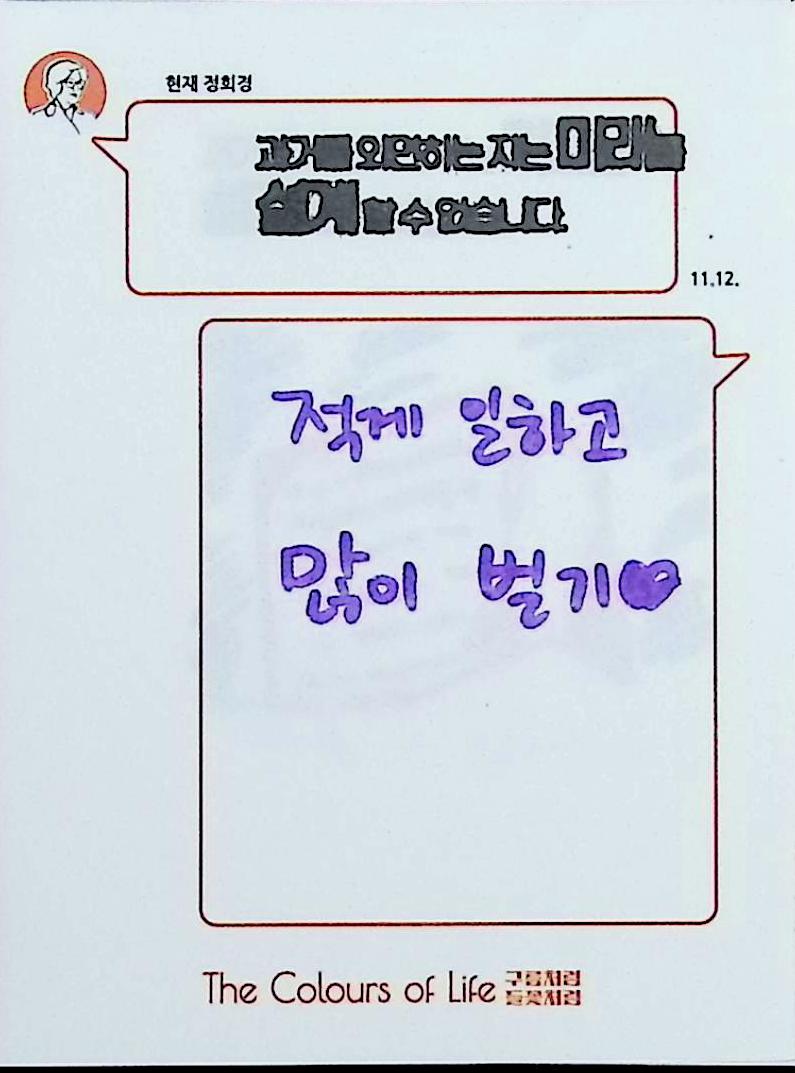 현재 정희경
과거를 외면하는 자는 미래를
설계 할 수 없습니다.
11.12.
적게 일하고
많이 벌기♥
The Colours of Life 구름처럼
들꽃처럼